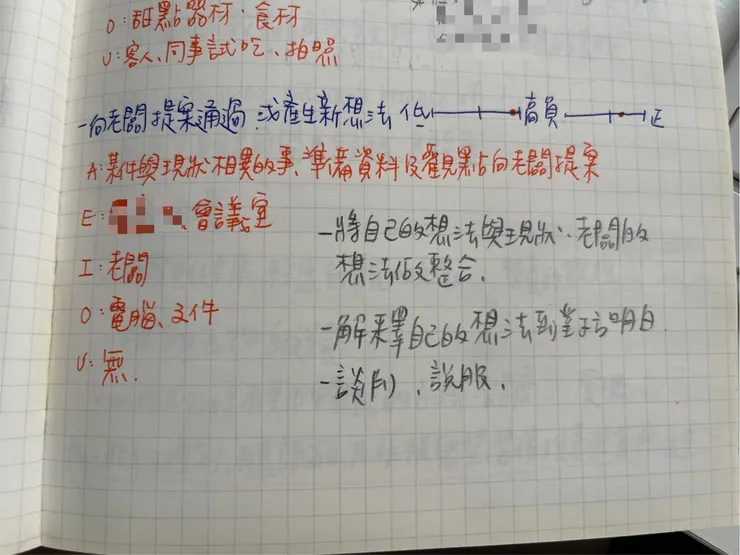 O:甜點器材、食材
U:客人、同事試吃、拍照
-向老闆提案通過、或產生新想法 低 高 負 正
A:某件與現狀相異的事、準備資料及觀點向老闆提案
E: 、會議室
I:老闆
O:電腦、文件
U:無.
-將自己的想法與現狀、老闆的
想法做整合.
-解釋自己的想法到對方明白.
-談判、說服.